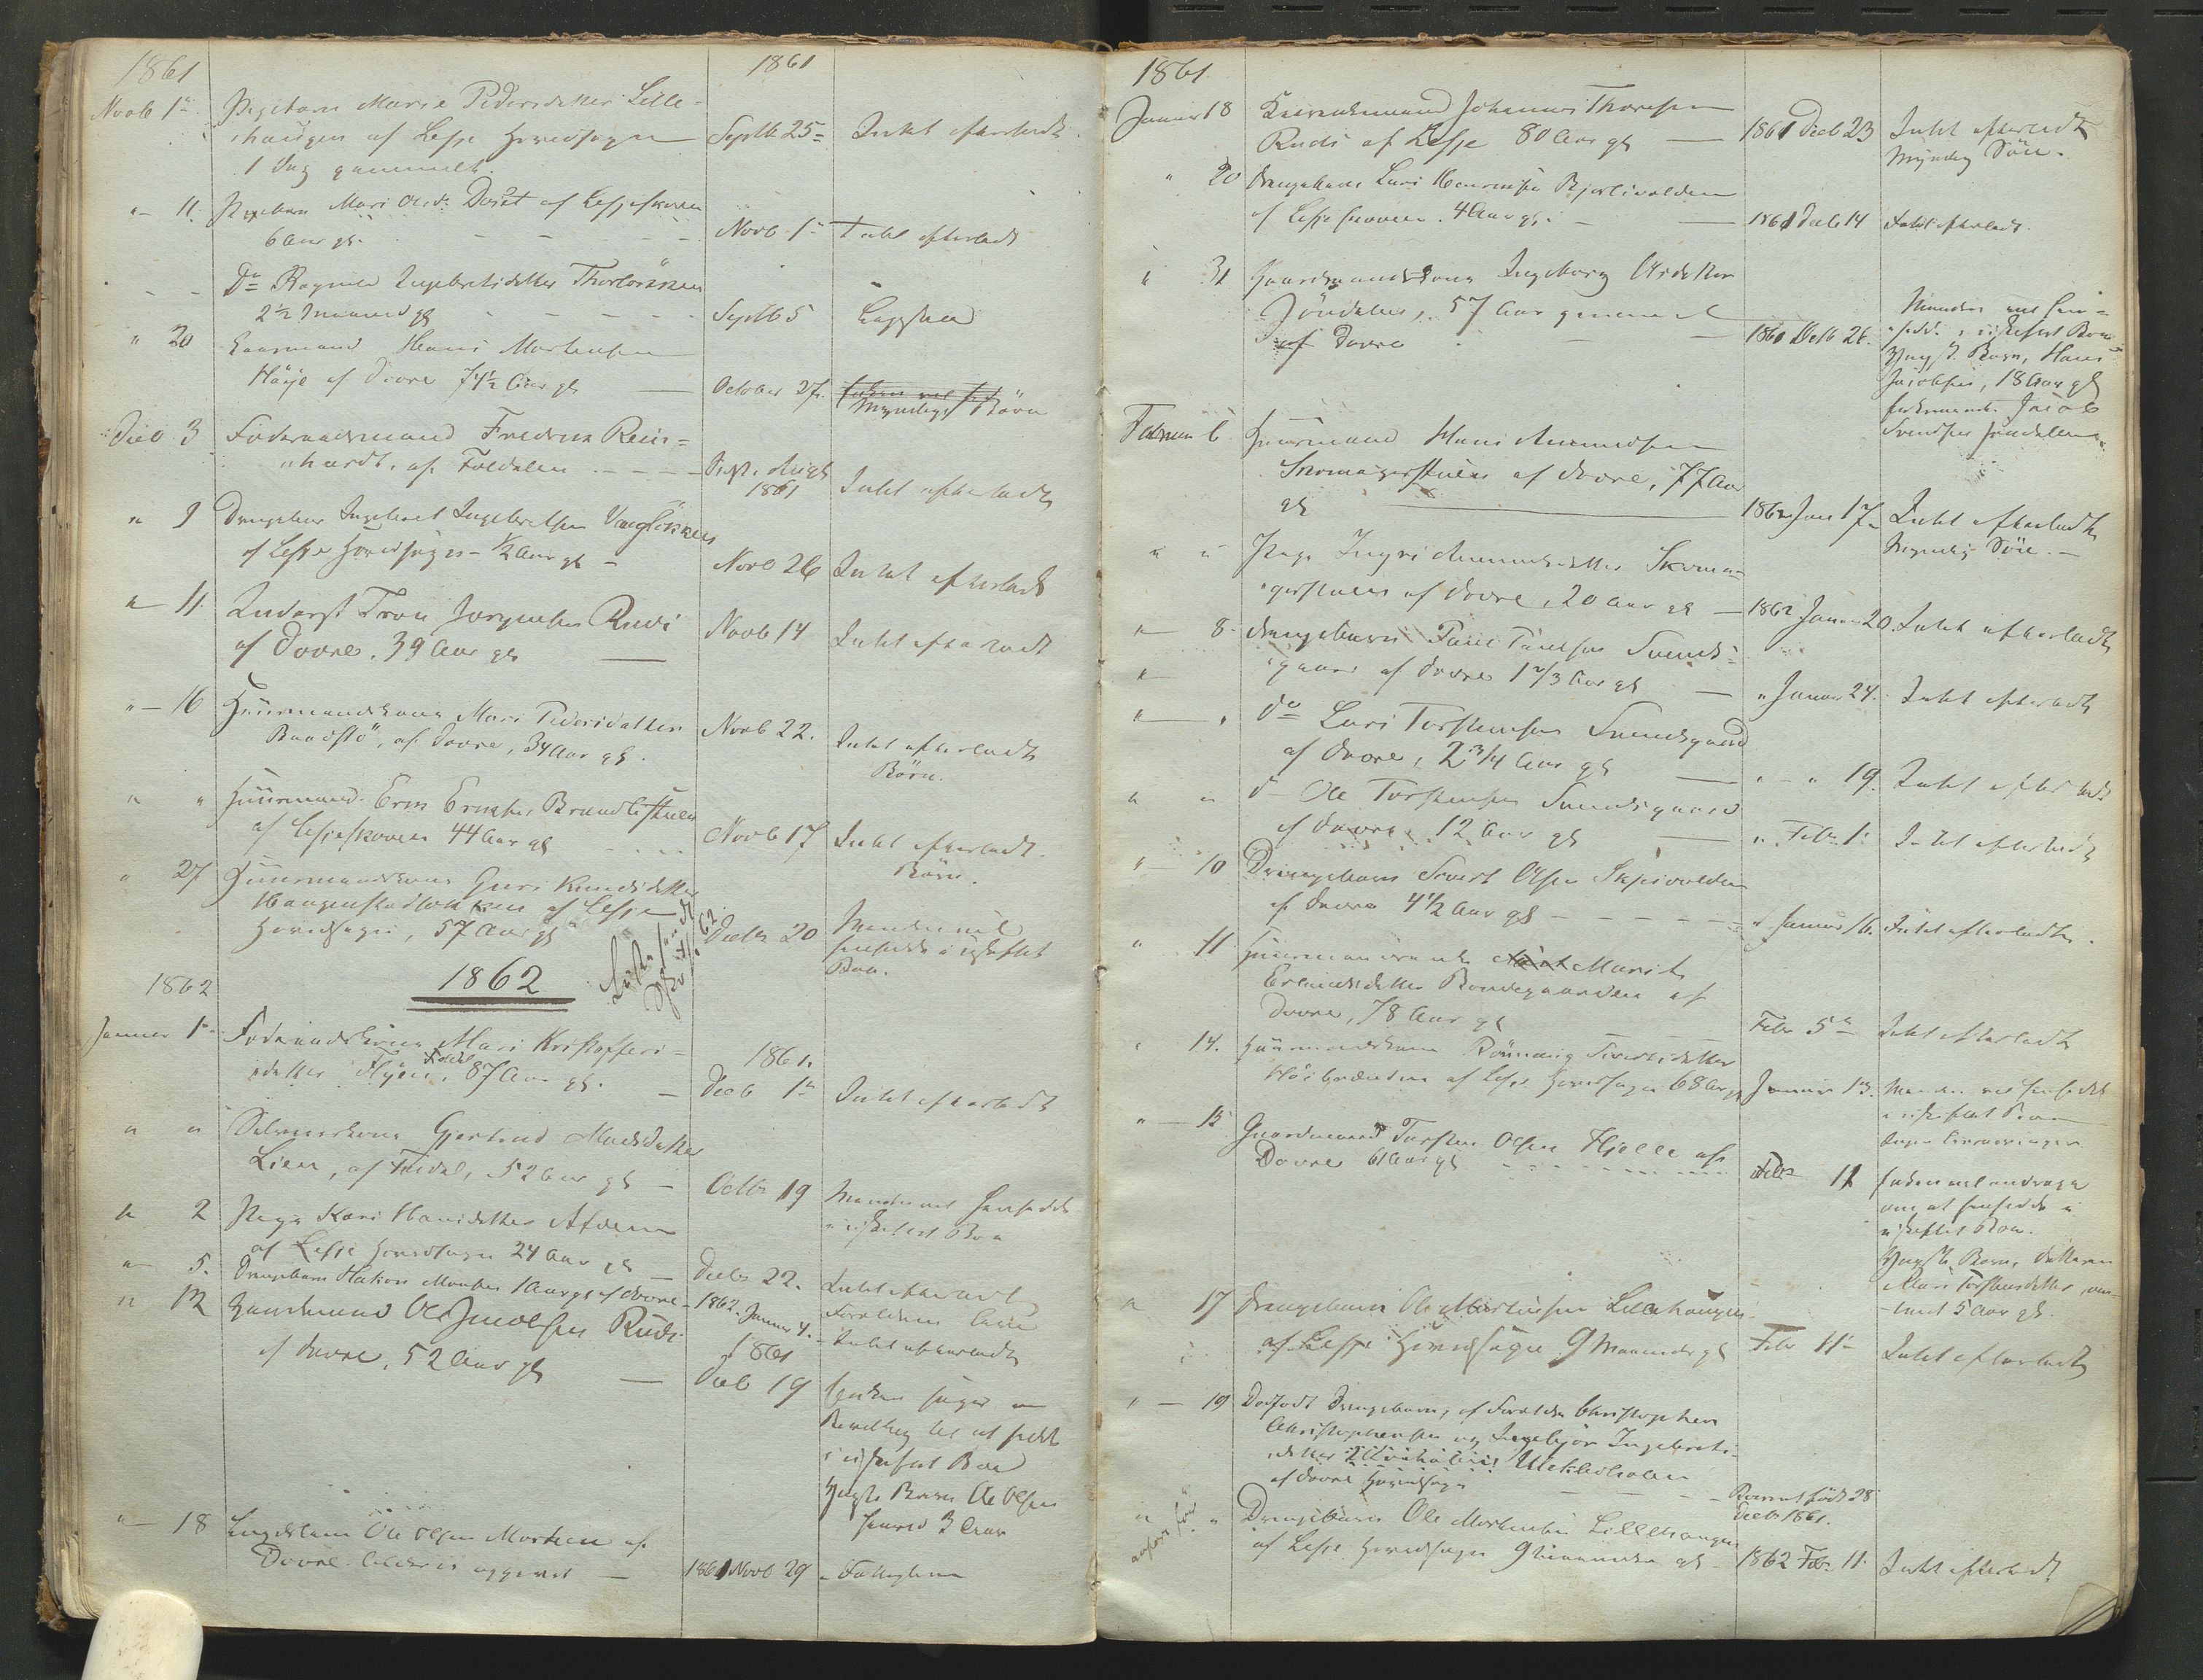 1861
1861
Novb 1ste Pigebarn Marie Pedersdatter Lille-
haugen af Lesje Hovedsogn Septb 25 Intet efterladt
1 Dag gammelt.
" 11. Pigebarn Mari Olsd. Doset af Lesjeskoven
6 Aar gl. Novb 1 Intet efterladt
Do Ragnild Ingebretsdatter Thorløkken
2½ Maaned gl Septb 5
" 20 Hans Mortensen
Høye af Dovre 74½ Aar gl October 27. Myndige Børn
Decb. 3 Føderaadsmand Fredrik Rein-
hardt, af Foldalen
1861 Intet efterladt
" 9 Drengebarn Ingebret Ingebretsen Vangløkken
af Lesje Hovedsogn ½ Aar gl Novb 26 Intet efterladt
" 11 Inderst Tron Jørgensen Rudi Novb 14 Intet efterladt
af Dovre. 39 Aar gl
" 16 Huusmandskone Mari Pedersdatter Novb 22. Intet efterladt
af Dovre, 34 Aar gl. Børn.
" " Huusmand Erik Eriksen Brandlistuen
af Lesjeskoven 44 Aar gl Novb 17 Intet efterladt
Børn.
" 27 Huusmandskone Guri Knudsdatter
Haugenstadløkken af Lesje
Hovedsogn, 57 Aar gl Decbr 20 Manden vil
hensidde i uskiftet
Boe.
1862 1862
Januar 1ste Føderaadskone Mari Kristoffers-
datter Flyen, 87 Aar gl. 1861.
Decb 1ste Intet efterladt
" " Selveierkone Gjertrud Madsdatter
Lien, af Foldal, 52 Aar gl Octbr 19 Manden vil hensidde
i uskiftet Boe
" 2 Pige Kari Hansdatter Afdem
af Lesje Hovedsogn 24 Aar gl Decbr 22. Intet efterladt
" 5. Drengebarn Hakon 1 Aar gl af Dovre 1862 Januar 4. Forældrene
" 12 Gaardmand Ole Jacobsen Rudi Intet efterladt
af Dovre. 52 Aar gl 1861
Decb 19 Enken søger om
Bevilling til at sidde
i uskiftet Boe
Yngste Barn Ole Olsen
3 Aar
" 18 Ole Olsen af
Dovre. Alder ei opgivet 1861 Novb 29
1861.
Januar 18 Johannes Thoresen
Rudi af Lesje 80 Aar gl 1861 Decb 23 Intet efterladt
Myndig Søn.
" 20 Drengebarn Lars
af Lesjeskoven. 4 Aar gl. 1861 Decb 14 Intet efterladt.
" 31 Gaardmandskone Ingeborg
Jøndalen, 57 Aar gammel
af Dovre 1861 Decb 26. Manden vil hen-
sidde i uskiftet Boe
Yngste Barn, Hans
Jacobsen, 18 Aar gl
Enkemand Jacob
Svendsen Jøndalen.
Februar 6 Huusmand Hans Amundsen
Skomagerstuen af Dovre, 77 Aar
gl 1862 Jan 17. Intet efterladt
Myndig Søn.
" " Pige Ingri Amundsdatter Skoma-
gerstuen af Dovre, 20 Aar gl 1862 Januar 20. Intet efterladt
" 8. Drengebarn Paul Paulsen Svends-
gaard af Dovre 1 2/3 Aar gl " Januar 24. Intet efterladt
" " do Lars Torstensen Svendsgaard
af Dovre, 2 3/4 Aar gl " " 19. Intet efterladt
" " do Ole Torstensen Svendsgaard
af Dovre 12 Aar gl " Febr. 1. Intet efterladt
" 10 Drengebarn Sivert Olsen
af Dovre 4½ Aar gl " Januar 16. Intet efterladt.
" 11 Huusmandsenke Marit
Erlandsdatter Bondegaarden af
Dovre, 78 Aar gl Febr 5te Intet efterladt
" 14. Huusmandskone Rønnaug Sivertsdatter
af Lesje Hovedsogn 68 Aar gl Januar 13. Manden vil hensidde
i uskiftet Boe
Ingen Livsarvinger
" 15 Gaardmand Torsten Olsen Hjelle af
Dovre 61 Aar gl Febr 11 Enken vil andrage
om at hensidde i
uskiftet Boe.
Yngste Barn, Datteren
Mari Torstensdatter, om-
trent 5 Aar gl.
" 17 Drengebarn Ole Mortensen Lillehaugen
af Lesje Hovedsogn 9 Maaneder gl Febr 11te Intet efterladt
" 19 Dødfødt Drengebarn, af Forældre Christopher
Christophersen og Ingebjør Ingebrets-
datter
af Dovre Hovedsogn Barnet født 28
Decbr 1861.
" " Drengebarn Ole Mortensen Lillehaugen
af Lesje Hovedsogn 9 Maaneder gl 1862 Febr. 11. Intet efterladt
anført før